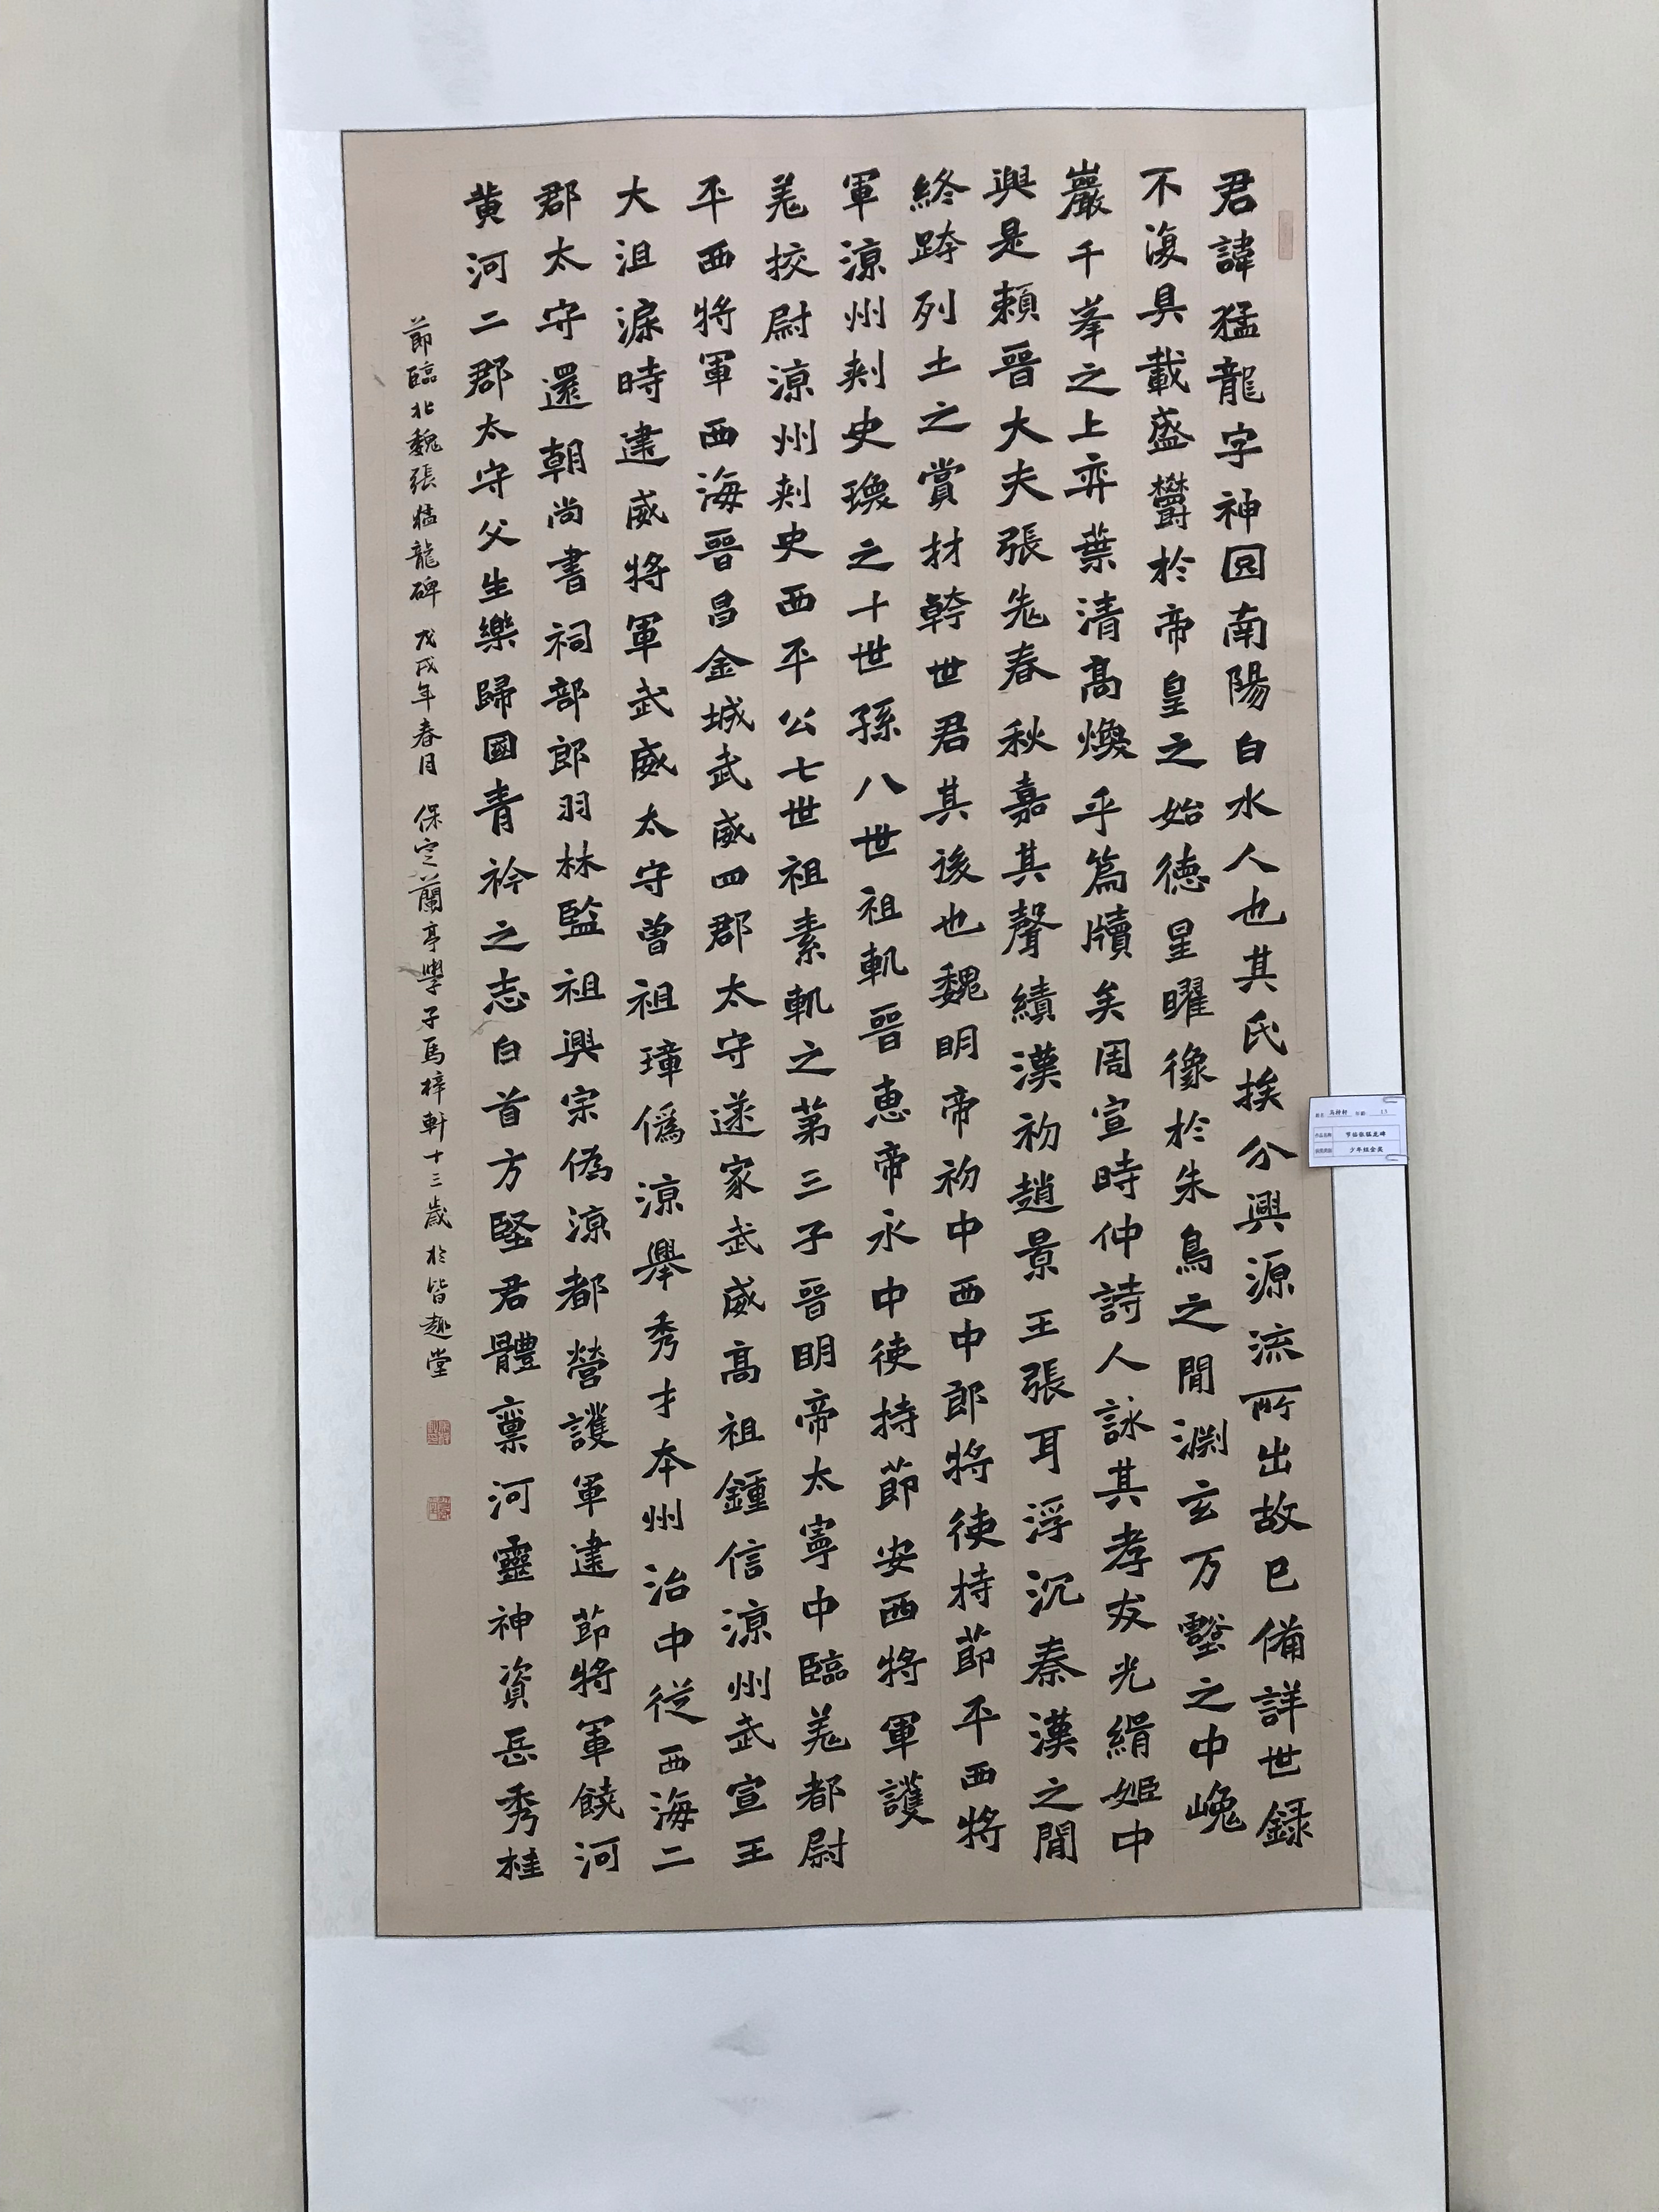 君諱猛龍字神囧南陽白水人也其氏挨分興源流所出故已備詳世録
不復具載盛欝於帝皇之始德星曜像於朱鳥之間渊玄万壑之中巉
巖千峯之上弈葉清高煥乎篇牘矣周宣時仲詩人詠其孝友光緝姬中
興是賴晉大夫張老春秋嘉其聲績漢初趙景王張耳浮沉秦漢之間
終跨列土之賞材幹世君其後也魏明帝初中西中郎將使持節平西將
軍涼州刺史瓌之十世孫八世祖軌晉惠帝永中使持節安西將軍護
羌校尉涼州刺史西平公七世祖素軌之第三子晉明帝太寧中臨羌都尉
平西將軍西海晉昌金城武威四郡太守遂家武威高祖鍾信涼州武宣王
大沮渠時建威將軍武威太守曾祖璋偽涼舉秀才本州治中從西海二
郡太守還朝尚書祠部郎羽林監祖興宗偽涼都營護軍建節將軍饒河
黄河二郡太守父生樂歸國青衿之志白首方堅君體稟河靈神資岳秀桂
節臨北魏張猛龍碑 戊戌年春月 保定蘭亭學子馬梓軒十三歲於皆趣堂
姓名 马梓轩 年龄 13
作品名称 节临张猛龙碑
少年组金奖